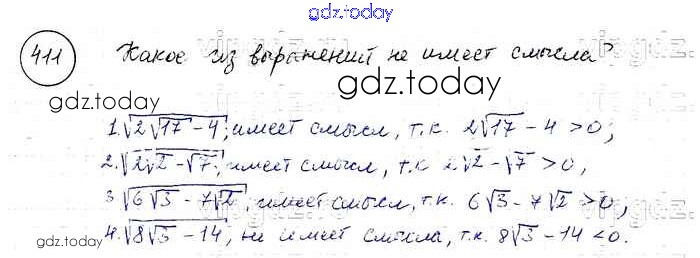 gdz.today
411 Какое из выражений не имеет смысла?
gdz.today
gdz.today
1. √(2√17 - 4); имеет смысл, т.к. 2√17 - 4 > 0;
2. √(2√2 - √7); имеет смысл, т.к 2√2 - √7 > 0,
3 √(6√3 - 7√2), имеет смысл, т.к. 6√3 - 7√2 > 0,
4. √(8√3 - 14), не имеет смысла, т.к. 8√3 - 14 < 0.
gdz.today
gdz.today